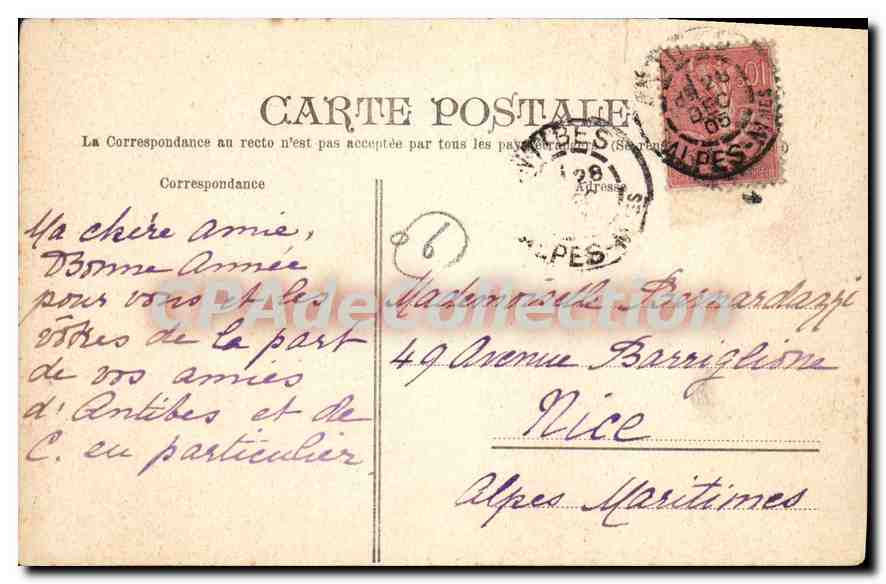 CARTE POSTALE
La Correspondance au recto n'est pas acceptée par tous les pays étrangers (Se
Correspondance
Adresse
ANTIBES
28
ALPES-MMES
28
DEC
05
ALPES-MMES
10
6
Ma chère amie,
Bonne Année
pour vous et les
vôtres de la part
de vos amies
d'Antibes et de
C. en particulier
Mademoiselle Bernardazzi
49 Avenue Barriglione
Nice
Alpes Maritimes
CPAdeCollection